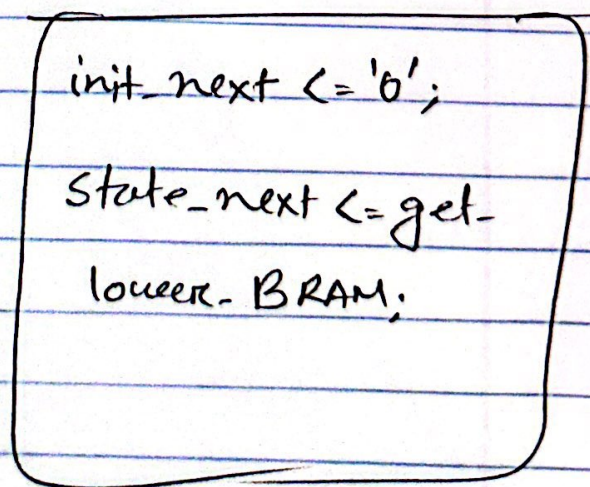 init_next <= '0';
state_next <= get_
lower_BRAM;